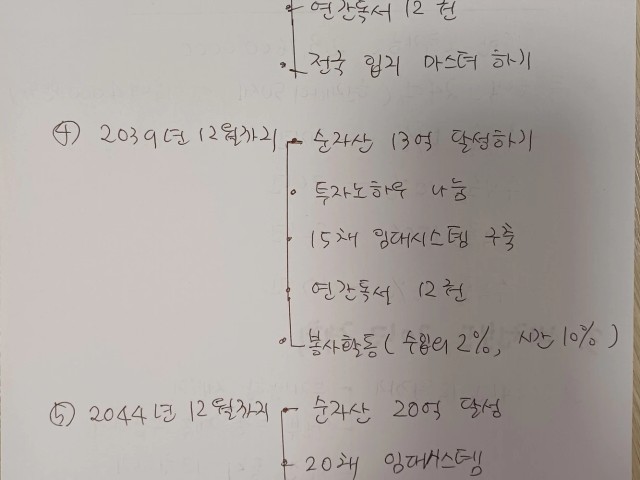 연간독서 12권
전국 입지 마스터 하기
④ 2039년 12월까지 순자산 13억 달성하기
투자노하우 나눔
15채 임대시스템 구축
연간독서 12권
봉사활동 (수입의 2%, 시간 10%)
⑤ 2044년 12월까지 순자산 20억 달성
20채 임대시스템